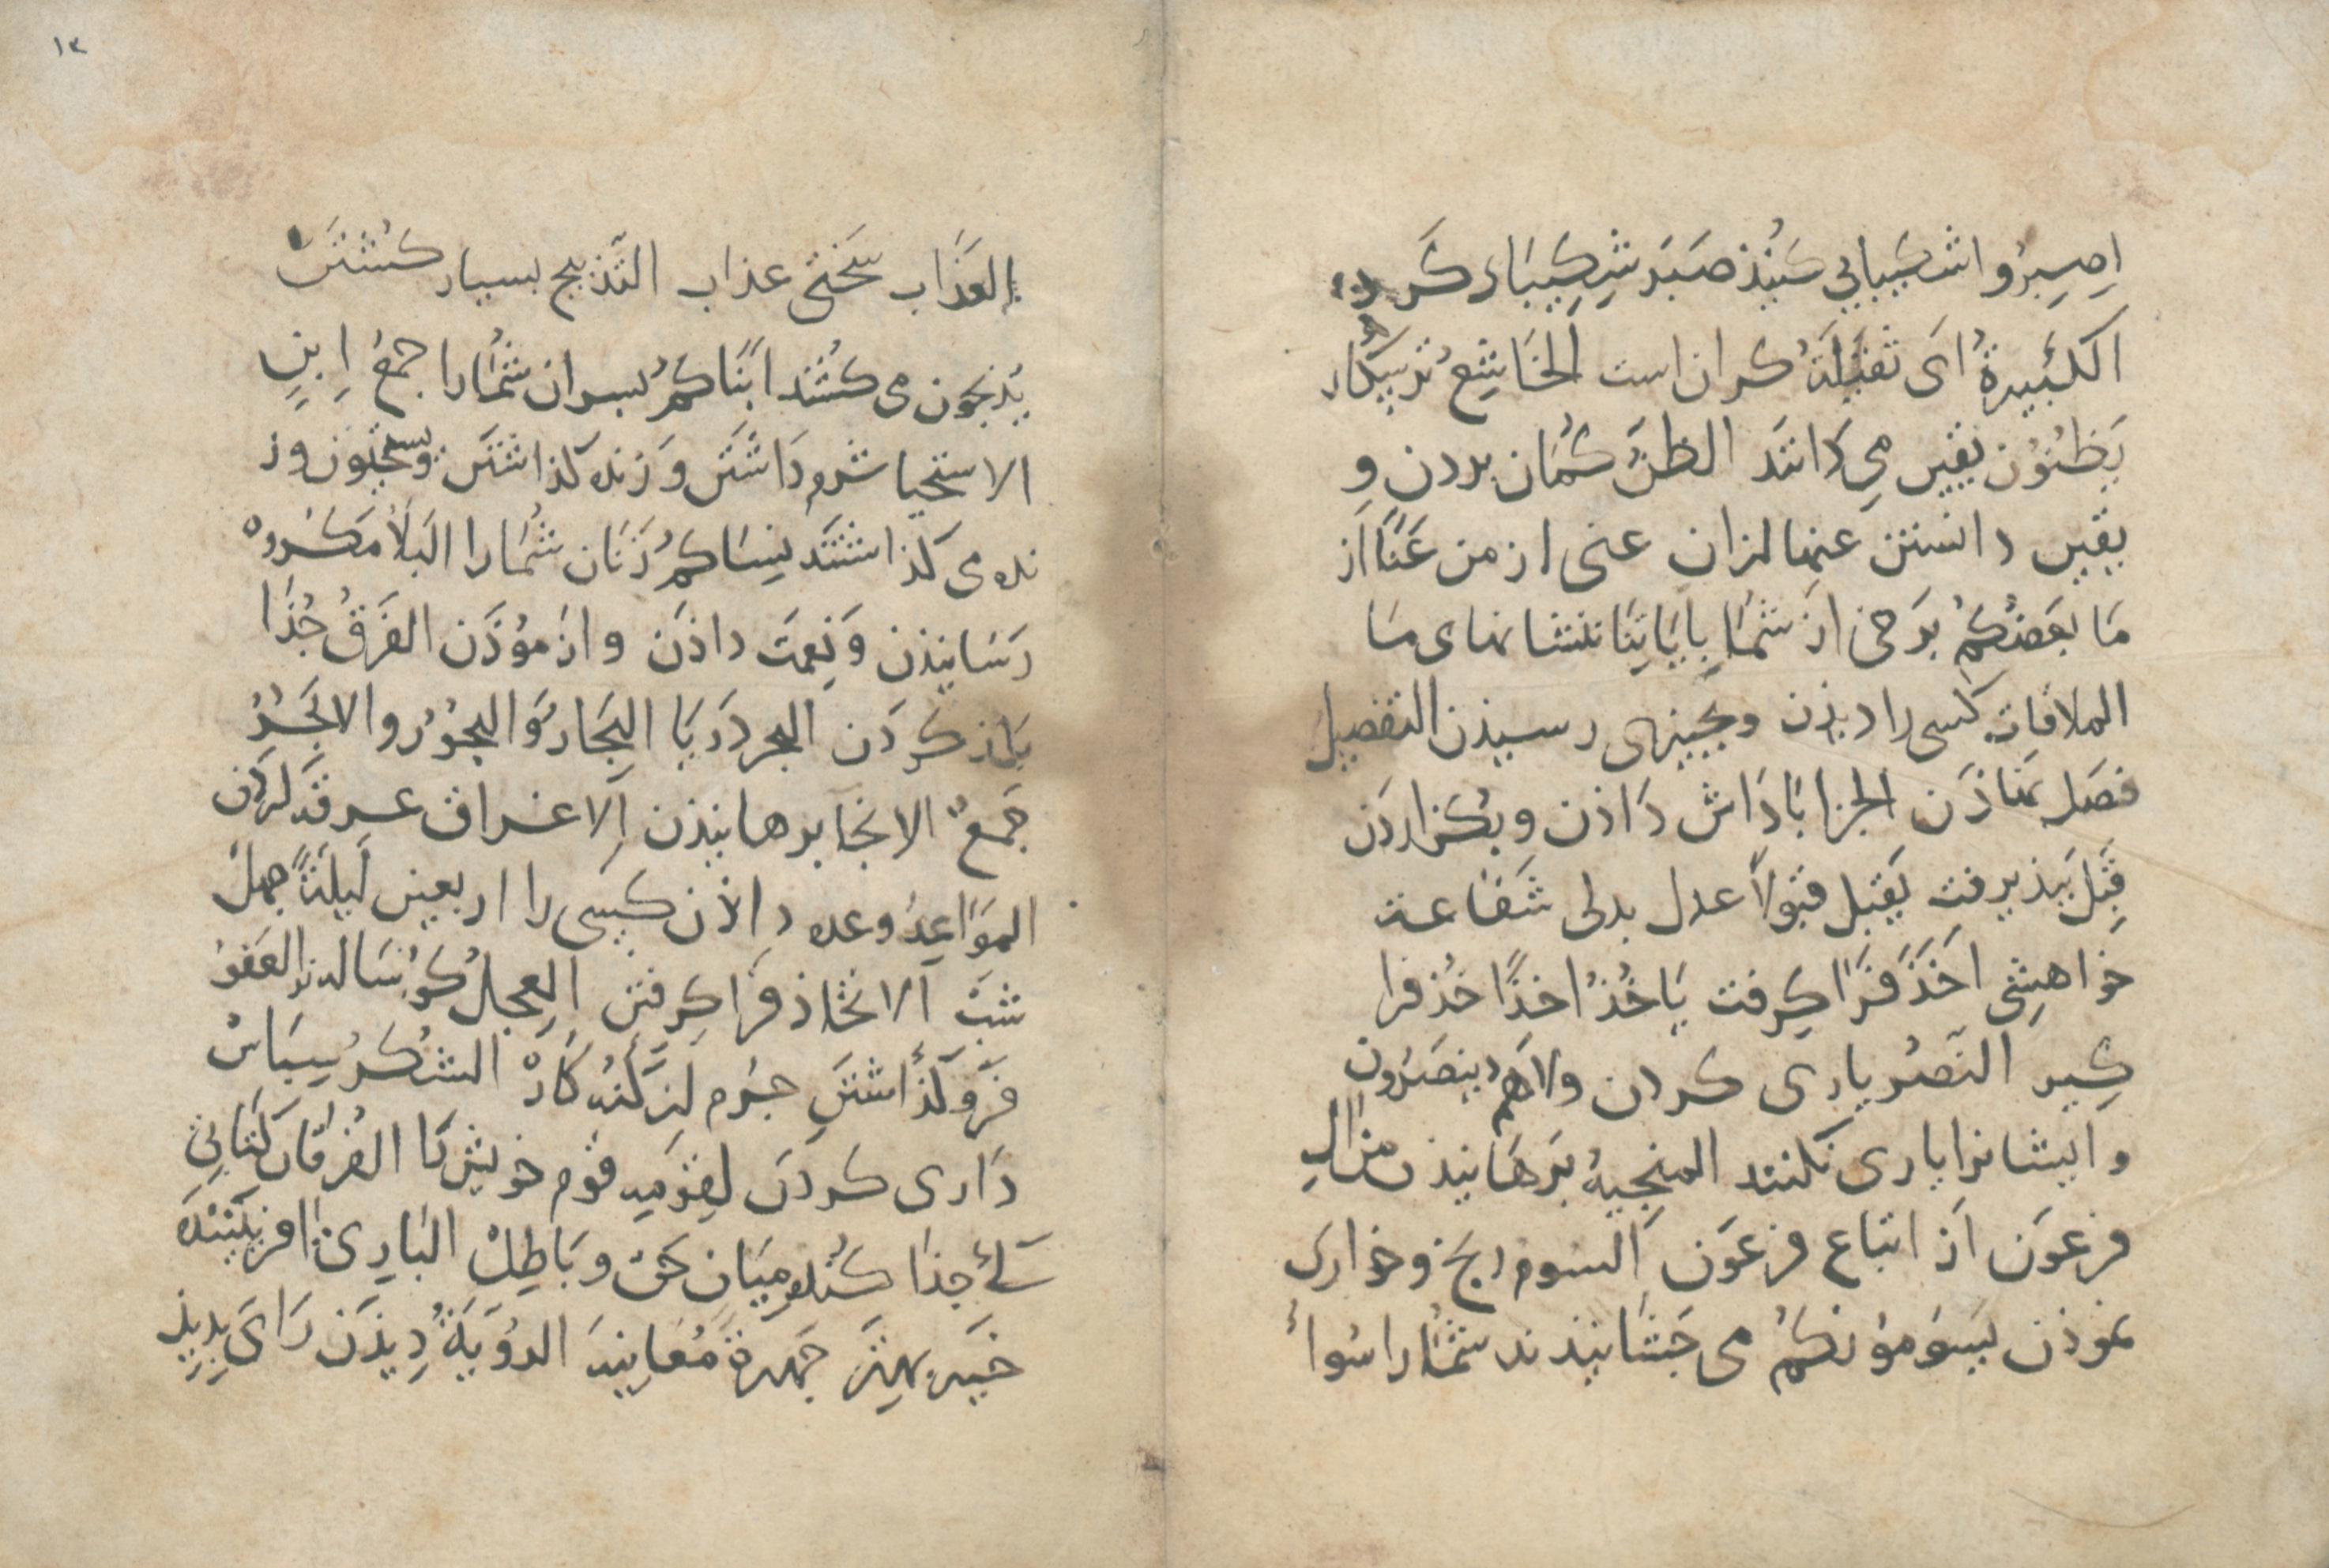 اِصبِرُوا شکیبایی کنیذ صَبَر شِکیبَاء کَرد
الکَبیرةُ اَی ثقیلةٌ کران است الخَاشِعُ ترسکار
یَظنُّوُن یقین می دَانَند الظنّ کُمَان بردن و
یقین دانستن عنها ازان عنی از من عَنَّا از
مَا بَعضُکُم بَرخی از شمَا بِایَاتِنَا بنشانهای مَا
الملاقات کسی را دیذن وبچیزی رسیذن التفضیل
فضَل نهَاذَن الجزا بَادَاش دَاذن و بکزاردَن
قِبَل بَپذیرفت یَقبَل قبَولاً عدل بدلی شَفَاعة
خواهِشِی اَخَذَ فَرَا کِرفت یَاخُذُ اخذًا خُذ فرا
کِیر النَصُر یاری کردن ولاهُم ینصَرُون
وایشانرا یاری نَکنند المنجیهُ بَرهَانیذن من اٰلِ
فرعَون اَز اتباع فرعَون اَلسوم رنج وخواری
نموذن یَسُومُونکُم می جَشَانیذند شمَا را سُواُ
العذَاب سَختی عذاب التَذبیح بسیار کُشتَن
یُذبحون می کشُتند ابَنَاکُم بسران شمَارا جمعُ اِبنٍ
الاستحیا شرم دَاشتَن وَ زنده کَذاشتَن ویستحیُون وز
نده می کَذاشتَند نِسَاکمُ زَنَان شُمَارا البَلَأ مَکرُوه
رَسَانیذن وَ نِعمَت داذَن و ازموُذَن الفَرَقُ جُذَا
بَاز کردَن البحر دَریَا البِحَارُ وَالبحوُرُ والابحُرُ
جَمعٌ الانجَا برهانیذن اَلاغراق غرقه کردَن
المَوَاعِدُ وعده داذَن کَسی را اربعین لَیلَةً جهل
شبَ الاتخَاذ فرَا کِرفتَن العِجلُ کُوسَاله العَفوُ
فَرَو کَذاشتَن جرُم کنه کَارْ الشُکرُ سِپَاسْ
دَاری کردَن لِقَومِه قَوم خویش رَا الفُرقَان کتَابی
کٔه جذَا کُند میَان حَق و بَاطِلْ البَارِیُ افرینَندَه
خَیر بهتَر جَهرةً مُعَاینَه الروُیَةُ دِیذَن رَای بدیذ
۱۳